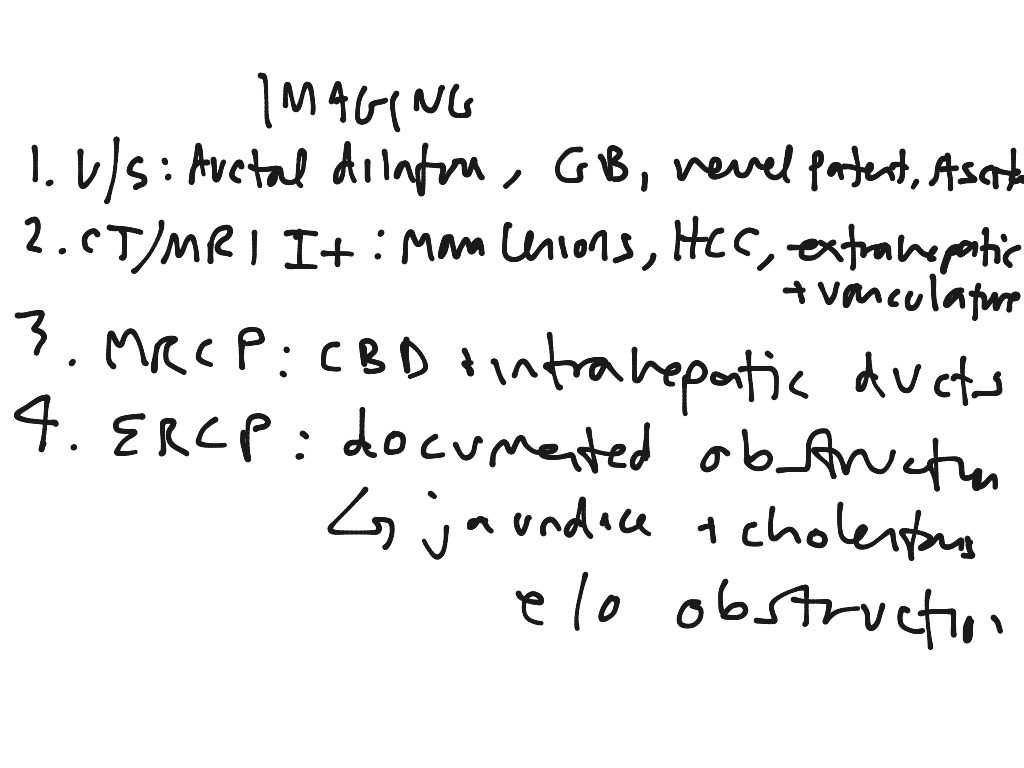 IMAGING
1. U/S: ductal dilatn, GB, vessel patent, Ascites
2. CT/MRI I+: Mass lesions, HCC, extrahepatic
+ vasculature
3. MRCP: CBD + intrahepatic ducts
4. ERCP: documented obstruction
↳ jaundice + cholestasis
e/o obstruction